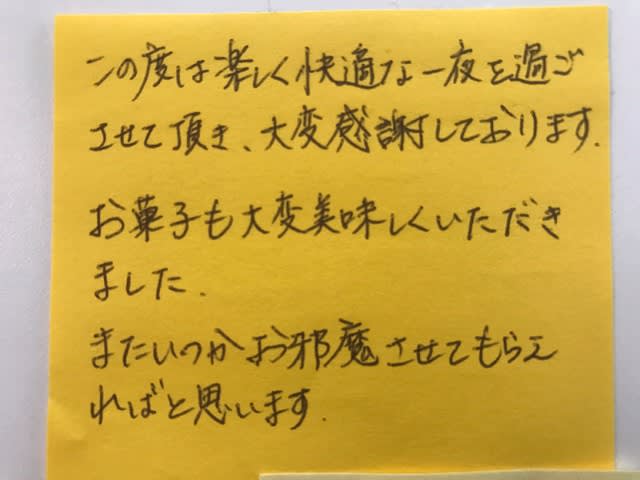 この度は楽しく快適な一夜を過ご
させて頂き、大変感謝しております.
お菓子も大変美味しくいただき
ました.
またいつかお邪魔させてもらえ
ればと思います.